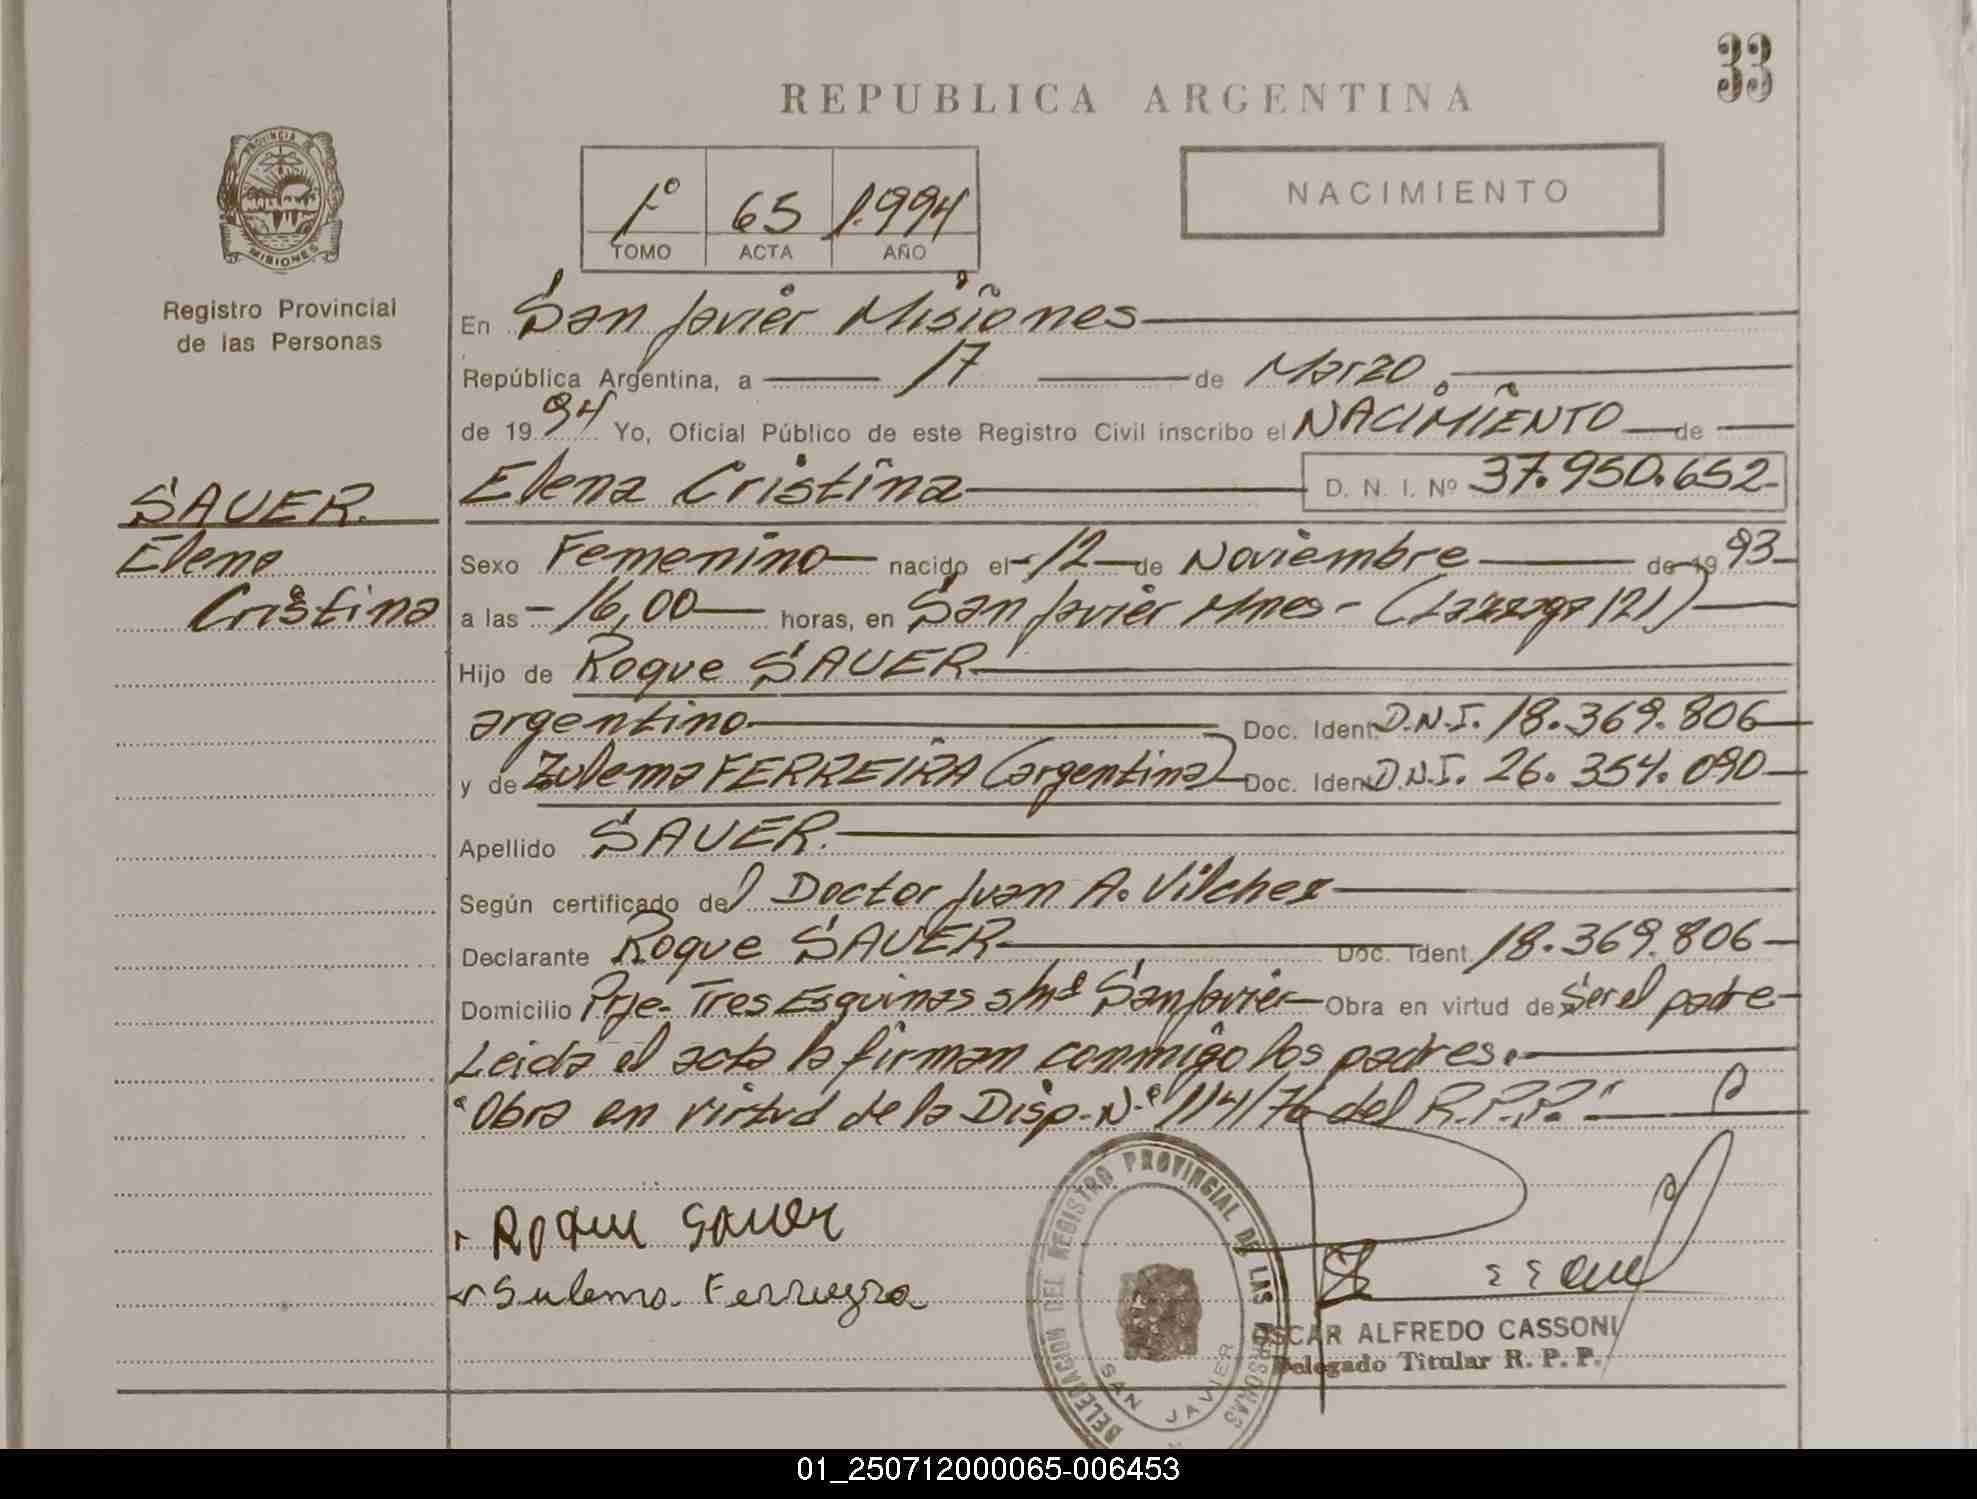 33
REPUBLICA ARGENTINA
PROVINCIA DE
MISIONES
Registro Provincial
de las Personas
1º 65 1.994
TOMO ACTA AÑO
NACIMIENTO
En San Javier Misiones
República Argentina, a 17 de Marzo
de 1994 Yo, Oficial Público de este Registro Civil inscribo el NACIMIENTO de
SAUER
Elena
Cristina
Elena Cristina D. N. I. Nº 37.950.652
Sexo Femenino nacido el 12 de Noviembre de 1993
a las 16,00 horas, en San Javier Mnes- (121)
Hijo de Roque SAUER
argentino Doc. Ident. D.N.I. 18.369.806
y de Zulema FERREIRA (argentina) Doc. Ident. D.N.I. 26.354.090
Apellido SAUER
Según certificado del Doctor Juan A. Vilchez
Declarante Roque SAUER Doc. Ident. 18.369.806
Domicilio Pje- Tres Esquinas s/nº San Javier Obra en virtud de Ser el padre
Leida el acta la firman conmigo los padres.
"Obra en virtud de la Disp. Nº 114/76 del R.P.P."
Roque Sauer
Sulema Ferreyra
DELEGACION DEL REGISTRO PROVINCIAL DE LAS PERSONAS
SAN JAVIER
OSCAR ALFREDO CASSONI
Delegado Titular R. P. P.
01_250712000065-006453